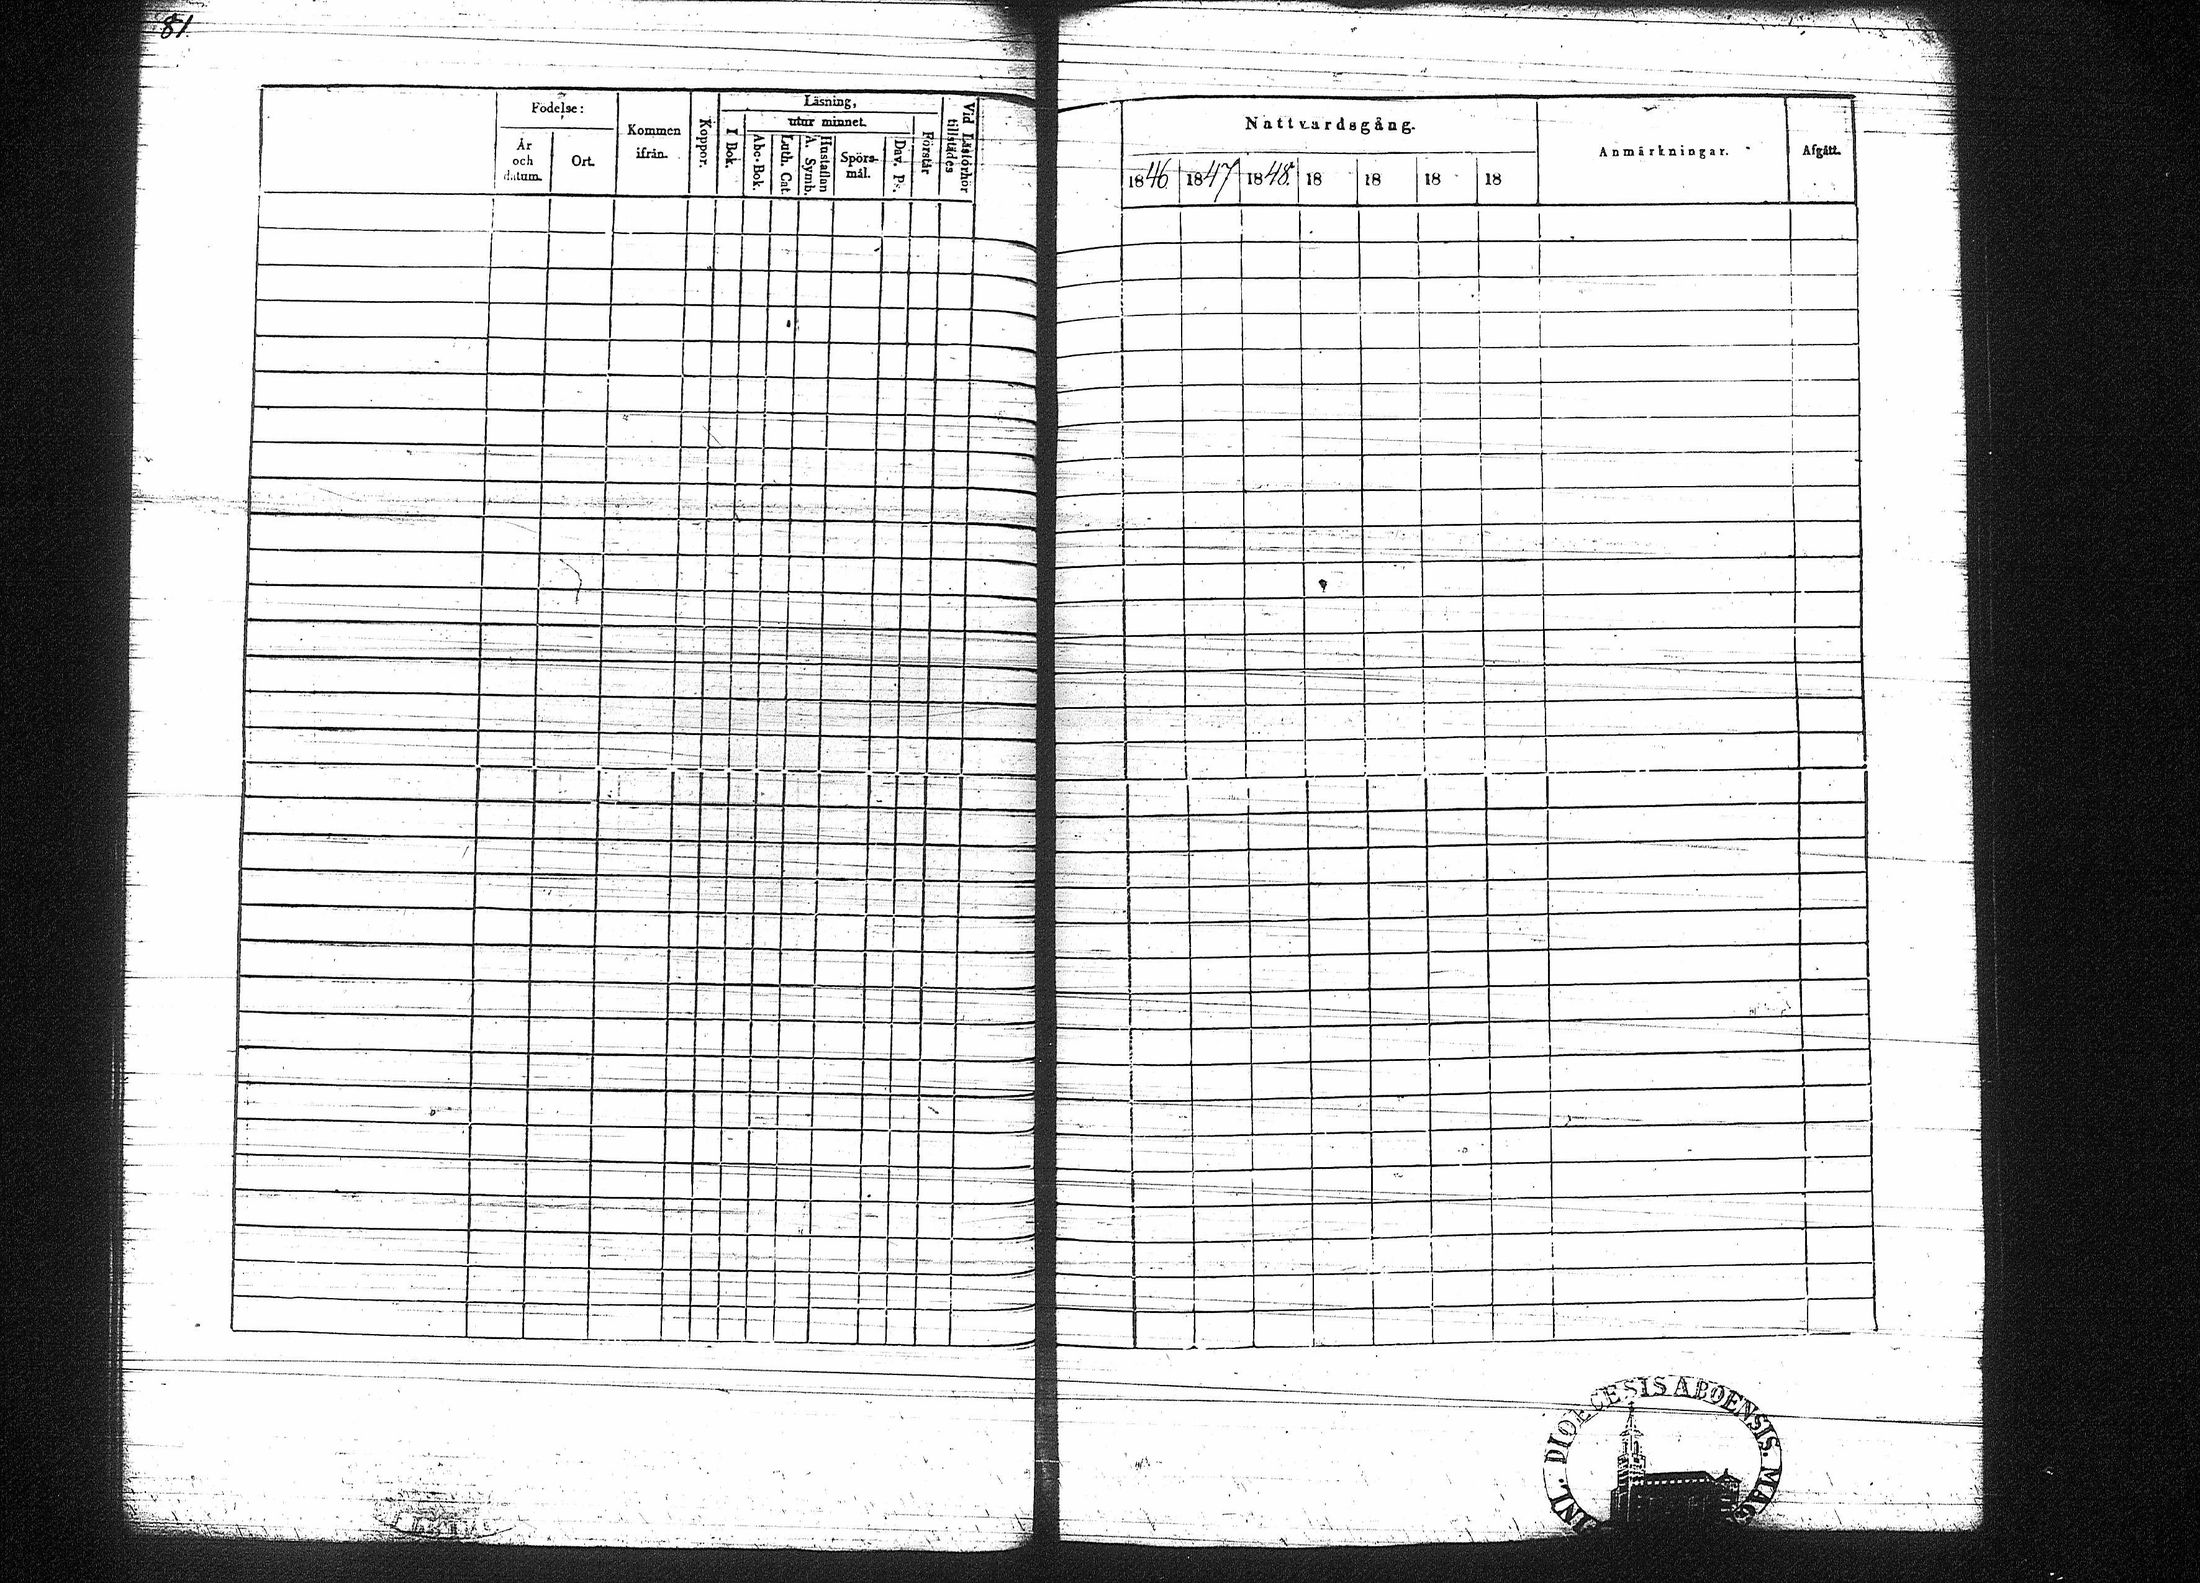 81.
Födelse:
År och datum.
Ort.
Kommen ifrån.
Koppor.
Läsning,
I Bok.
utur minnet.
Abc-Bok.
Luth. Cat.
Hustaflan A. Symb.
Spörsmål.
Dav. Ps.
Förstår
Vid Läsförhör tillstädes
Nattvardsgång.
1846 1847 1848. 18 18 18 18
Anmärkningar.
Afgått.
DIOECESIS ABOENSIS. MAG